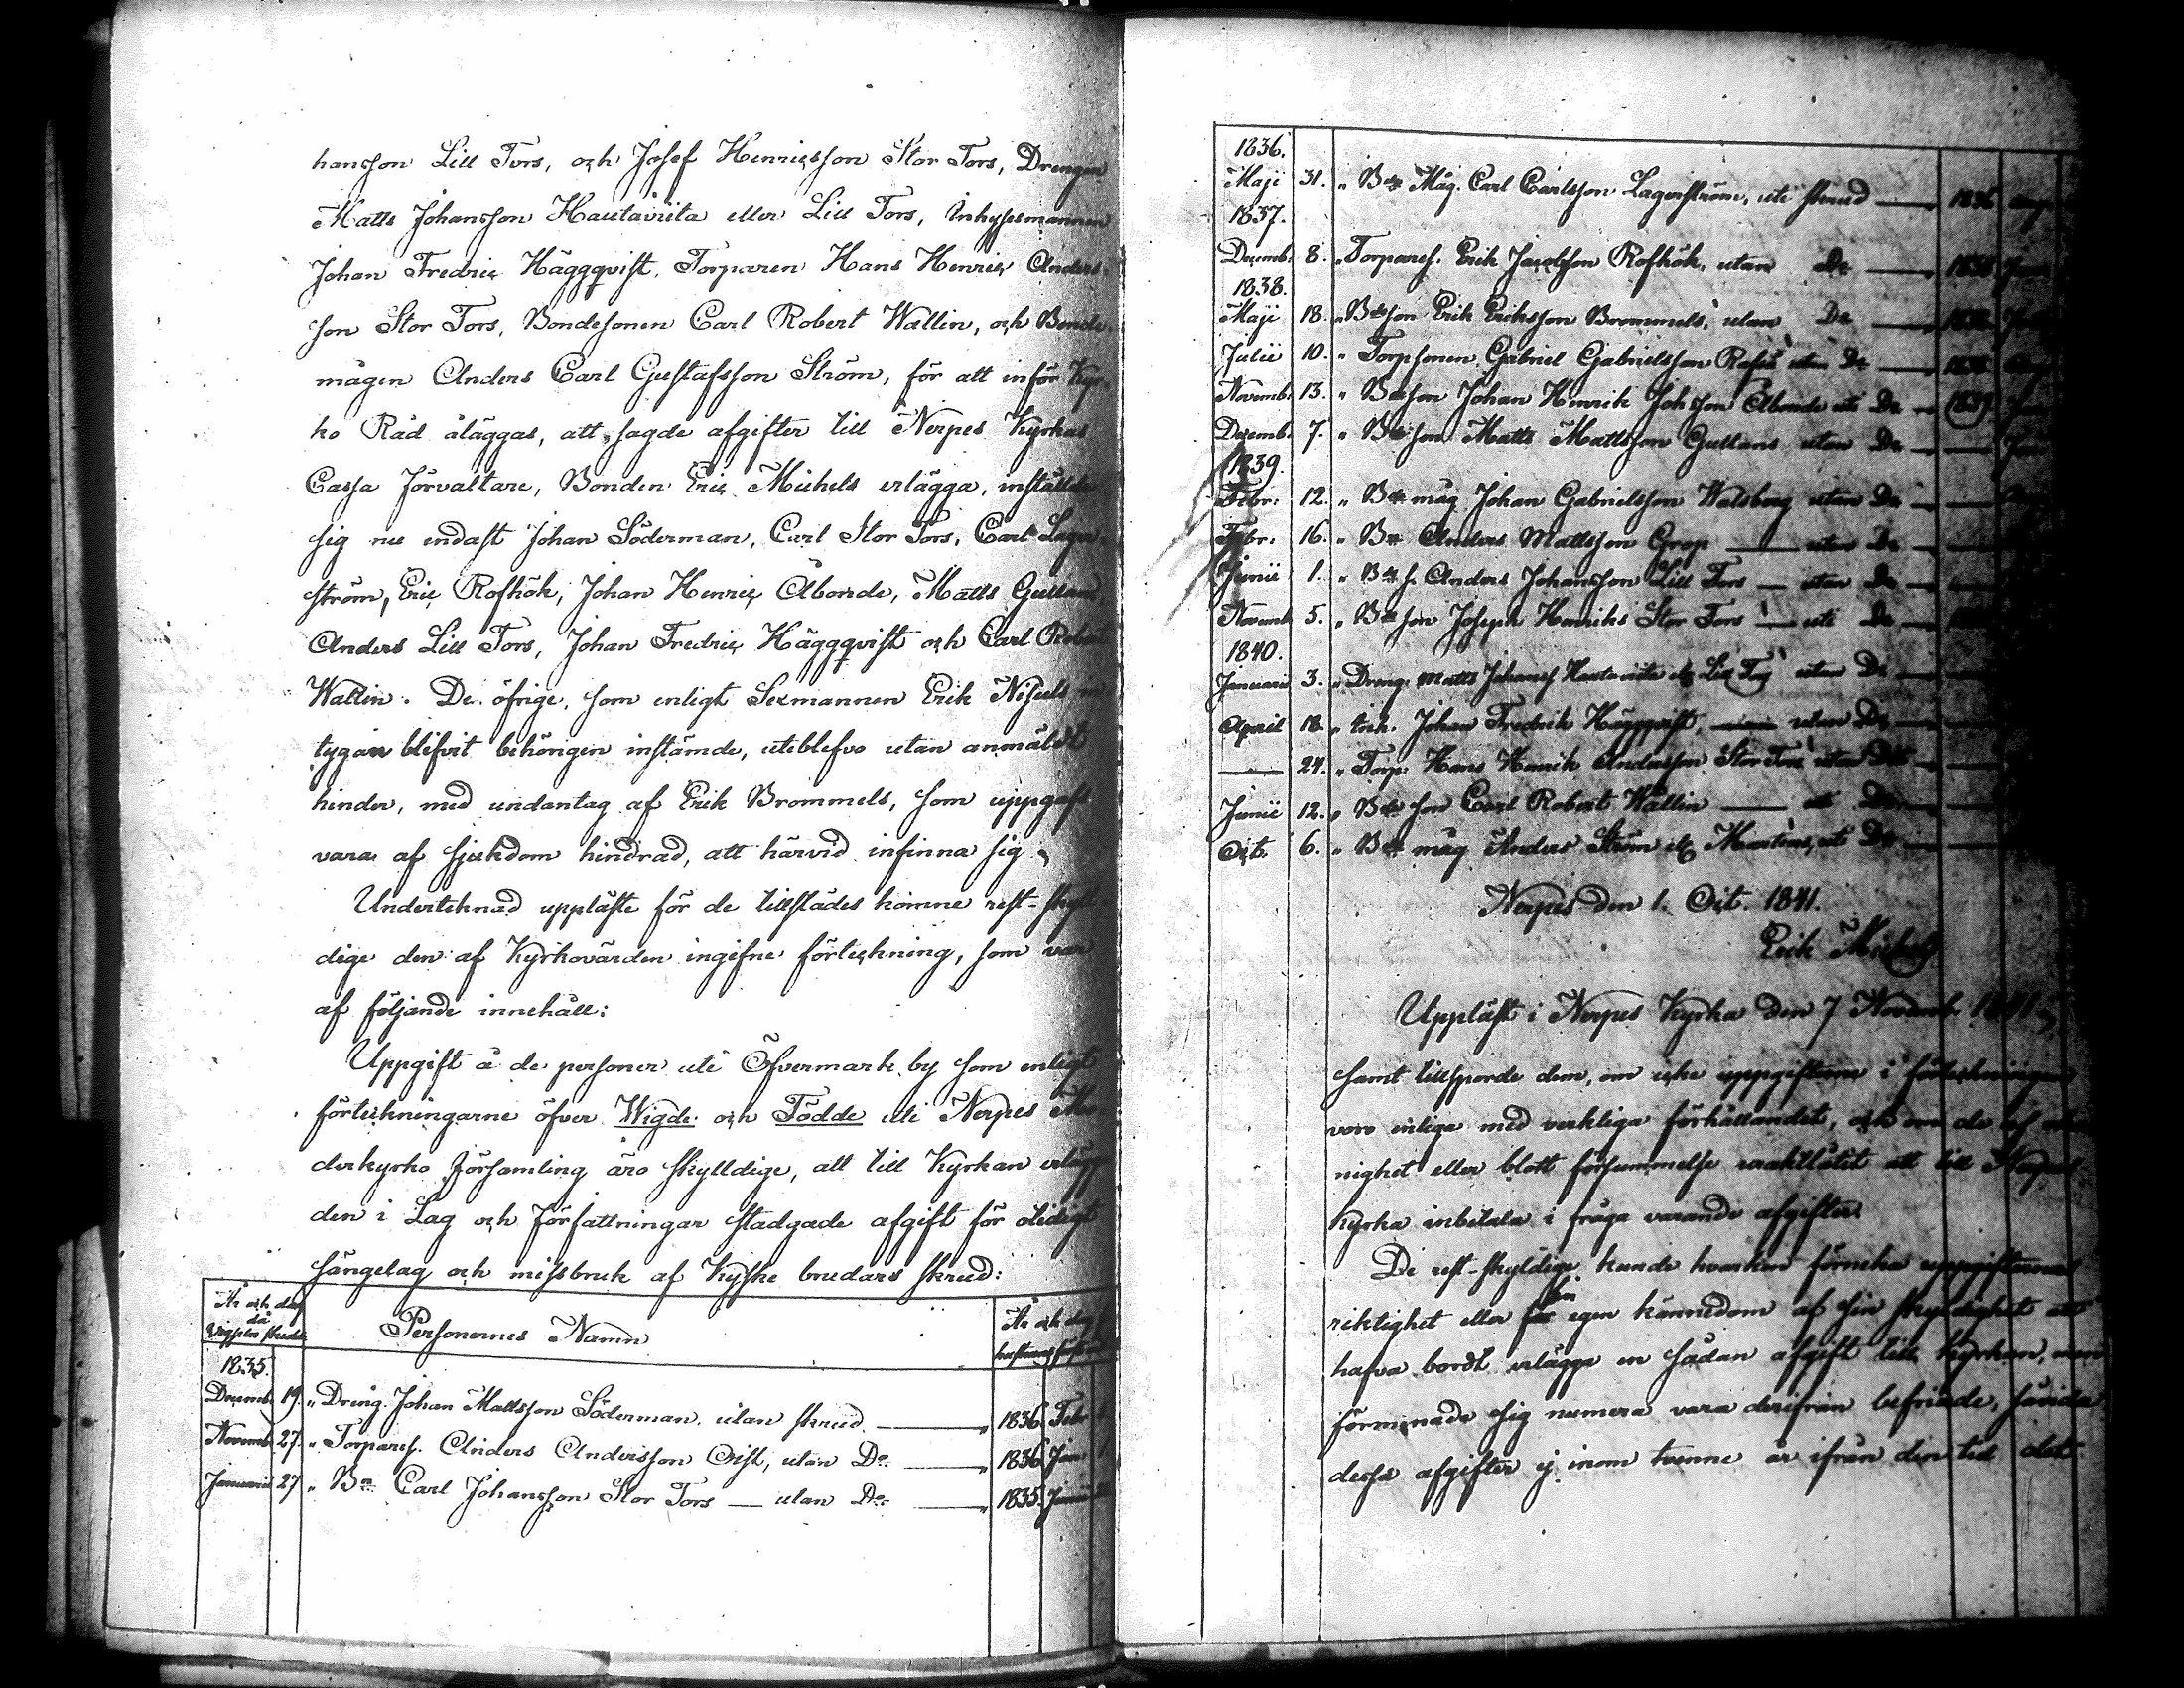 hansson Lill Tors, och Josef Henricsson Stor Tors, Drengen
Matts Johansson Hautaviita eller Lill Tors, Inhysesmannen
Johan Fredric Häggqvist, Torparen Hans Henric Anders-
son Stor Tors, Bondesonen Carl Robert Wallin, och Bonde-
mågen Anders Carl Gustafsson Ström, för att inför Kyr-
ko Råd åläggas, att sagde afgifter till Nerpes Kyrkas
Cassa Förvaltare, Bonden Eric Michels erlägga, inställde
sig nu endast Johan Söderman, Carl Stor Tors, Carl Lager-
ström, Eric Rofhök, Johan Henric Åbonde, Matts Gullans
Anders Lill Tors, Johan Fredric Häggqvist och Carl Robert
Wallin. De öfrige, som enligt Sexmannen Erik Nisuls
tygan blifvit behörigen instämde, uteblefvo utan anmäldt
hinder, med undantag af Erik Brommels, som uppgafs
vara af sjukdom hindrad, att härvid infinna sig.
Undertecknad uppläste för de tillstädes komne rest-skyl-
dige den af Kyrkovärden ingifne förteckning, som var
af följande innehåll:
Uppgift å de personer uti Öfvermark by som enligt
förteckningarne öfver Wigde och Födde uti Nerpes Mo-
derkyrko Församling äro skylldige, att till Kyrkan erlägga
den i Lag och Författningar stadgade afgift för otidigt
sängelag och missbruk af Kyske brudars skrud:
År och dag då Vigseln skedde
Personernes Namn
År och dag
1835.
Decemb. 19. „ Dreng. Johan Mattsson Söderman. utan skrud. — „ 1836 Febr
Novemb. 27. „ Torparef. Anders Andersson Qvist, utan Do — „ 1836 Jan
Januarii 27 „ Bn Carl Johansson Stor Tors — utan Do — „ 1835. Junii
1836.
Maji 31. „ Bde Måg. Carl Carlsson Lagerström, uti skrud — 1836
1837.
Decemb. 8. „ Torparef. Erik Jacobsson Rofhök, utan Do — 1838
1838.
Maji 18. „ Bdeson Erik Eriksson Brommels, utan Do — 1838.
Julii 10. „ Torpsonen Gabriel Gabrielsson utan Do — 1838.
Novemb. 13. „ Bdeson Johan Henrik Johsson Åbonde uti Do — 1839.
Decemb. 7. „ Bdeson Matts Mattsson Gullans utan Do —
1839.
Febr. 12. „ Bde måg Johan Gabrielsson Walsberg utan Do —
Febr. 16. „ Bn Anders Mattsson Grop — utan Do —
Junii 1. „ Bde s. Anders Johansson Lill Tors — utan Do —
Novemb. 5. „ Bde son Joseph Henriks Stor Tors — uti Do —
1840.
Januarii 3. „ Dreng. Matts Johanss Hautaviita el. Lill Tors utan Do
April 18 „ Inh. Johan Fredrik Häggqvist, — utan Do
— 24. „ Torp. Hans Henrik Andersson Stor Tors utan Do —
Junii 12. „ Bde son Carl Robert Wallin — uti Do
Oct. 6. „ Bde måg Anders Ström el. Martins, uti Do —
Nerpes den 1. Oct. 1841.
Erik Michels
Uppläst i Nerpes Kyrka den 7 Novemb. 1841,
samt tillsporde dem, om icke uppgifterne i förteckningen
voro enliga med verkliga förhållandet, och om de af
nighet eller blott försummelse uraktlåtit att till Nerpes
Kyrka inbetala i fråga varande afgifter.
De rest-skyldige kunde hvarken förneka uppgifternas
riktighet eller sin egen kännedom af sin skyldighet att
hafva bordt erlägga en sådan afgift till Kyrkan, men
förmenade sig numera vara derifrån befriade, såvida
dessa afgifter ej inom tvenne år ifrån den tid det